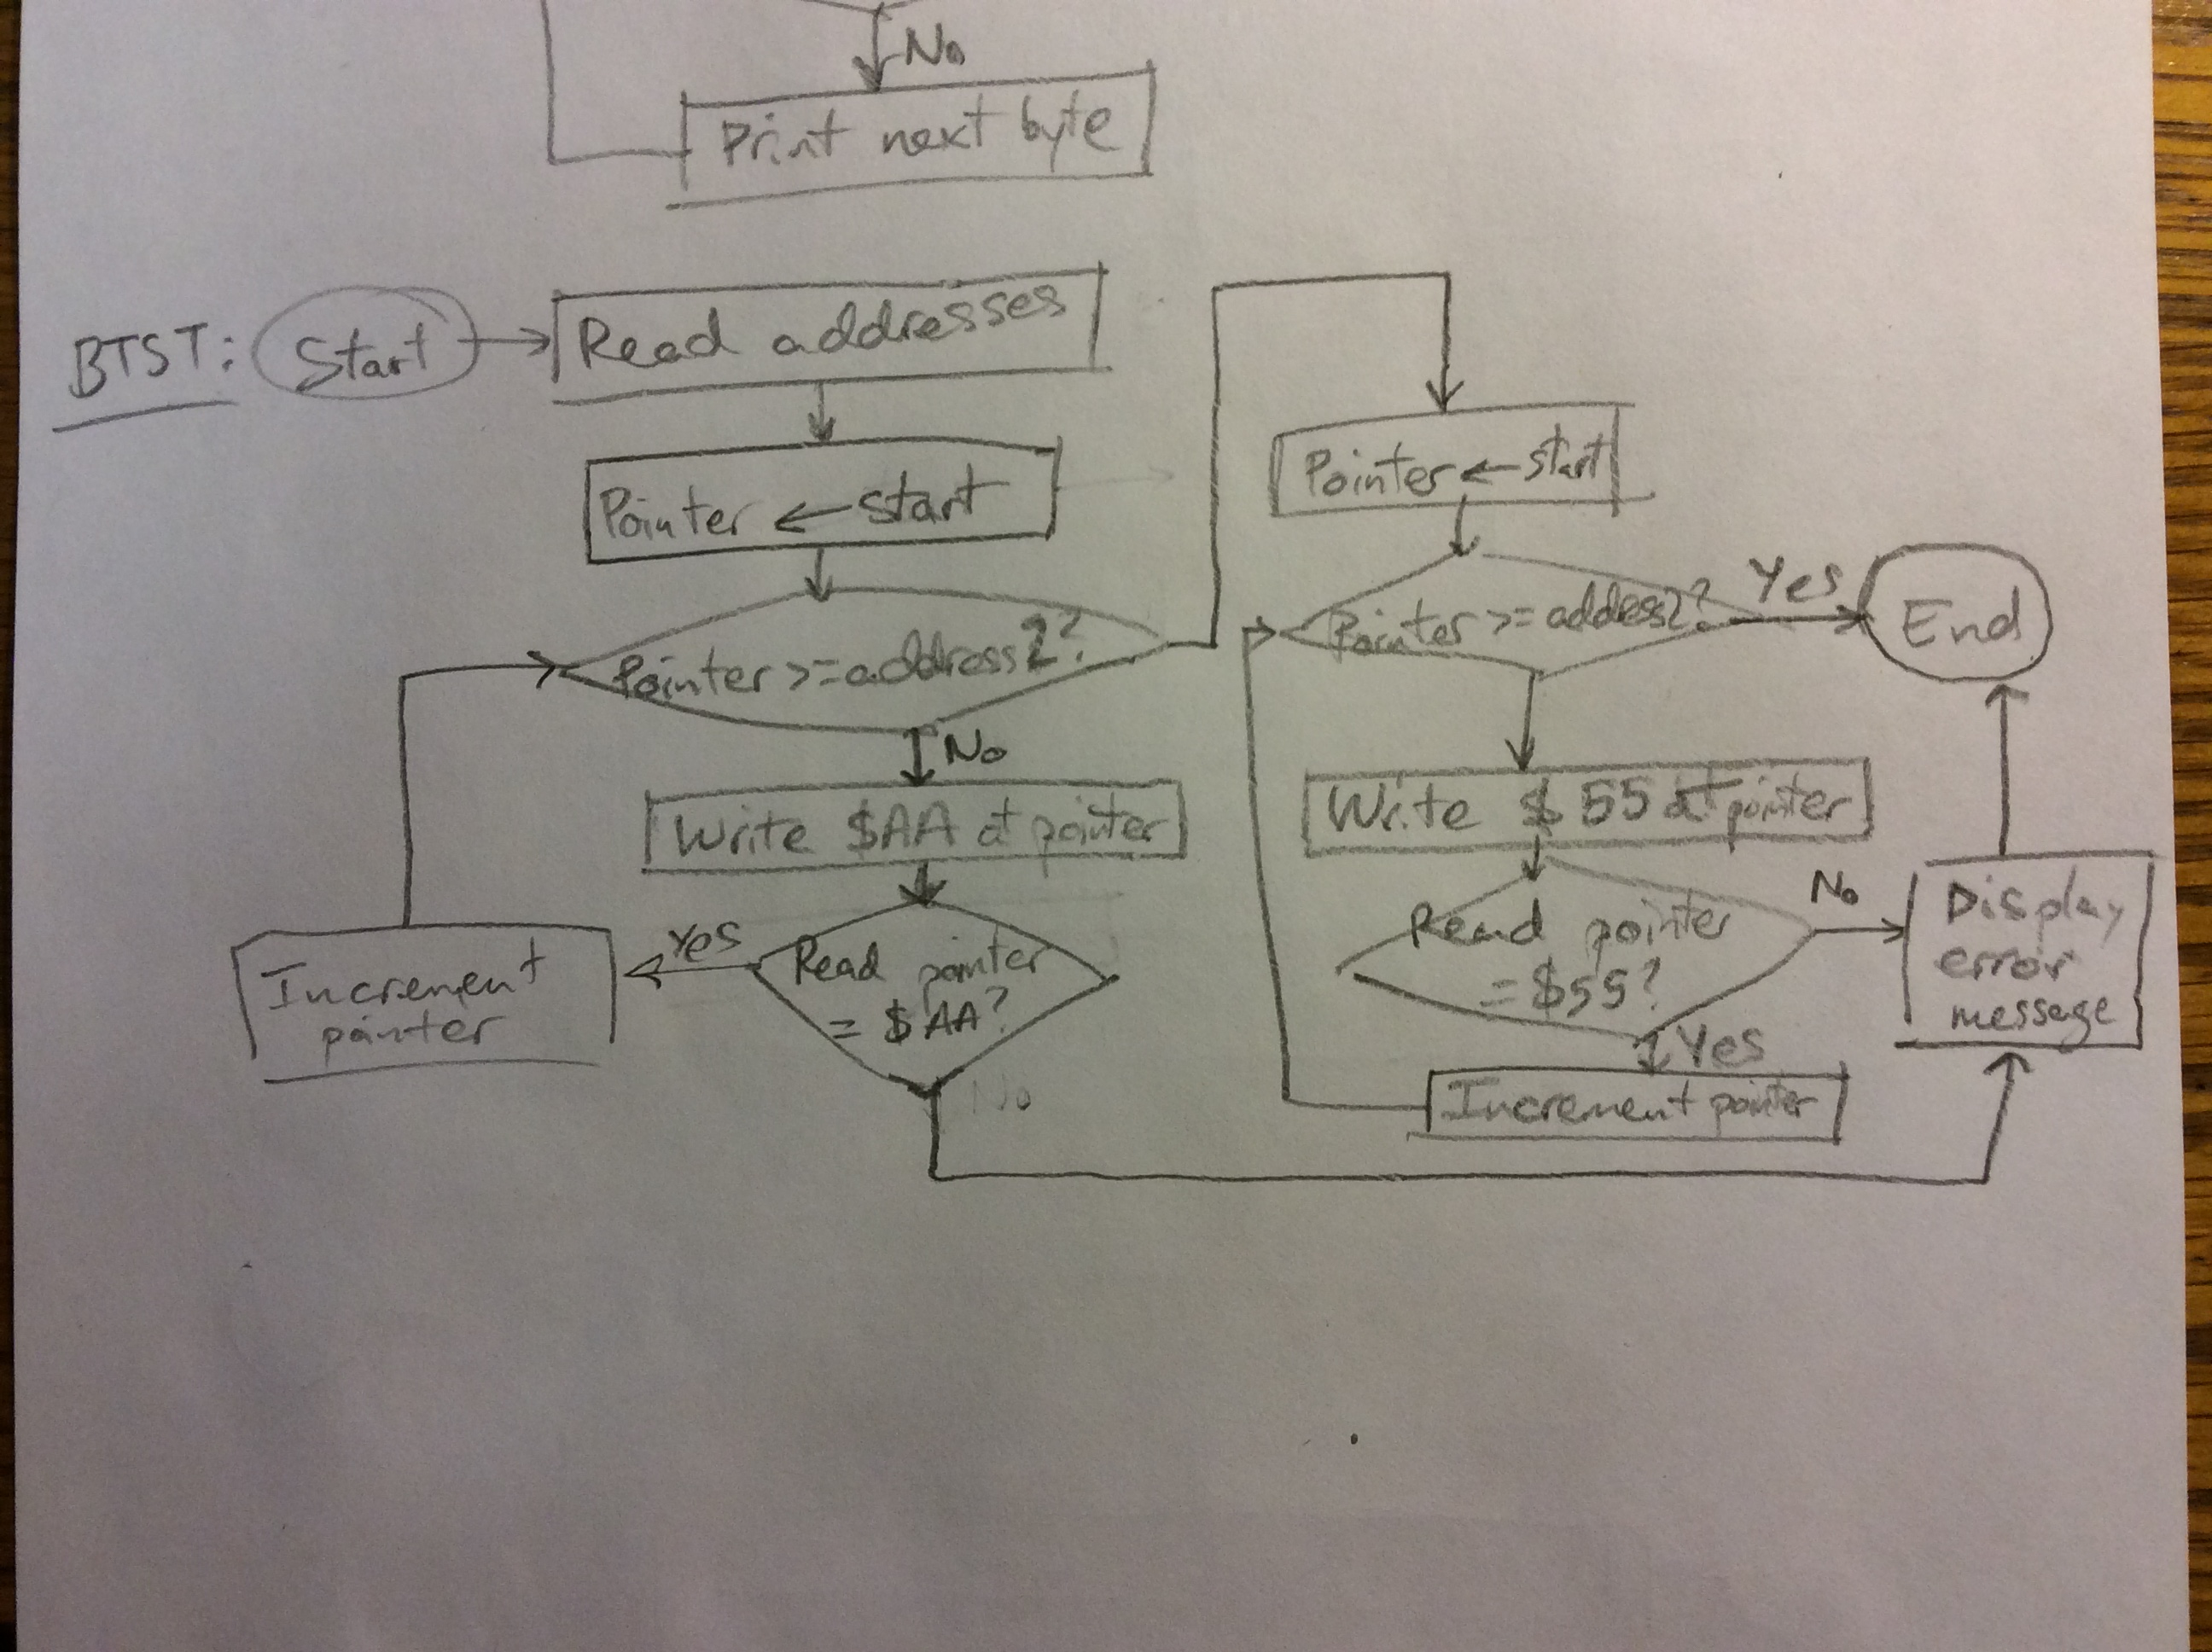 No
Print next byte
BTST:
Start
Read addresses
Pointer ← start
Pointer >= address2?
No
Write $AA at pointer
Read pointer
= $AA?
Yes
Increment
pointer
No
Pointer ← start
Pointer >= addess2?
Yes
End
Write $55 at pointer
Read pointer
= $55?
No
Display
error
message
Yes
Increment pointer